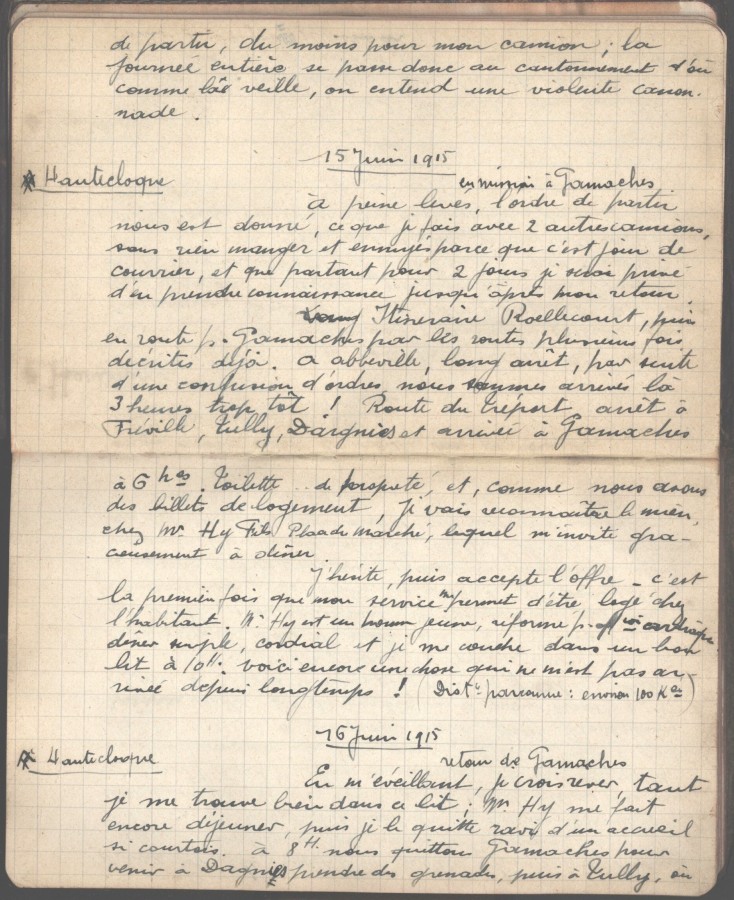 de partir, du moins pour mon camion ; la
journée entière se passe donc au cantonnement d'où
comme la veille, on entend une violente canon-
nade.
15 Juin 1915
Hautecloque
en mission à Gamaches
À peine levés, l'ordre de partir
nous est donné, ce que je fais avec 2 autres camions,
sans rien manger et ennuyés parce que c'est jour de
courrier, et que partant pour 2 jours je serai privé
d'en prendre connaissance jusqu'àprès mon retour.
Itinéraire Roellecourt, puis
en route p. Gamaches par les routes plusieurs fois
décrites déjà. a abbeville, long arrêt, par suite
d'une confusion d'ordres nous sommes arrivés là
3 heures trop tôt ! Route du Tréport, arrêt à
Fréville, Tully, Dargnies et arrivée à Gamaches
à 6 hes. Toilette de propreté, et, comme nous avons
des billets de logement, je vais reconnaître le mien,
chez Mr Hy Fils Place du Marché, lequel m'invite gra-
cieusement à dîner
J'hésite, puis accepte l'offre - c'est
la première fois que mon service me permet d'être logé chez
l'habitant. Mr Hy est un homme jeune, réformé p.
dîner simple, cordial et je me couche dans un bon
lit à 10h. voici encore une chose qui ne m'est pas ar-
rivée depuis longtemps ! (Distce parcourue : environ 100 Kes)
16 Juin 1915
Hautecloque
retour de Gamaches
En m'éveillant, je crois rêver, tant
je me trouve bien dans ce lit ; Mr Hy me fait
encore déjeuner, puis je le quitte ravi d'un accueil
si courtois. à 8h. nous quittons Gamaches pour
venir à Dagnies prendre des grenades, puis à Tully, où